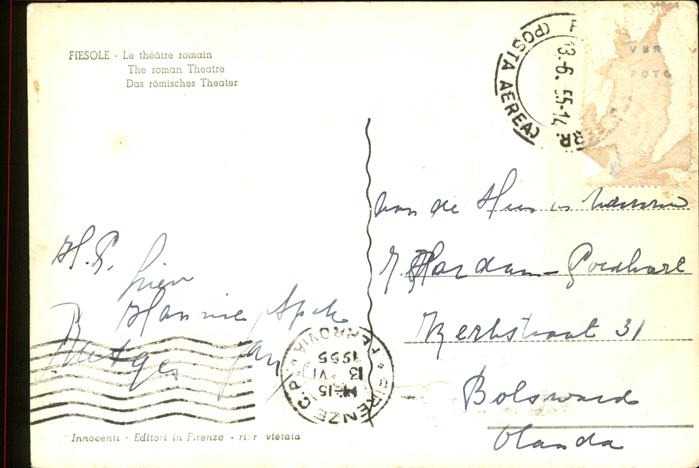 FIESOLE - Le théâtre romain
The roman Theatre
Das römisches Theater
(POSTA AEREA)
13.6.55-14
FERR
van de Heer en Mevrouw
Hardam - Goedhart
Kerkstraat 31
Bolsward
Olanda
H. G.
Lien
Hannie Spek
Rutger Jan
FIRENZE C.P.
FERROVIA
14-15
13 VI
1955
Innocenti - Editori in Firenze - ripr vietata